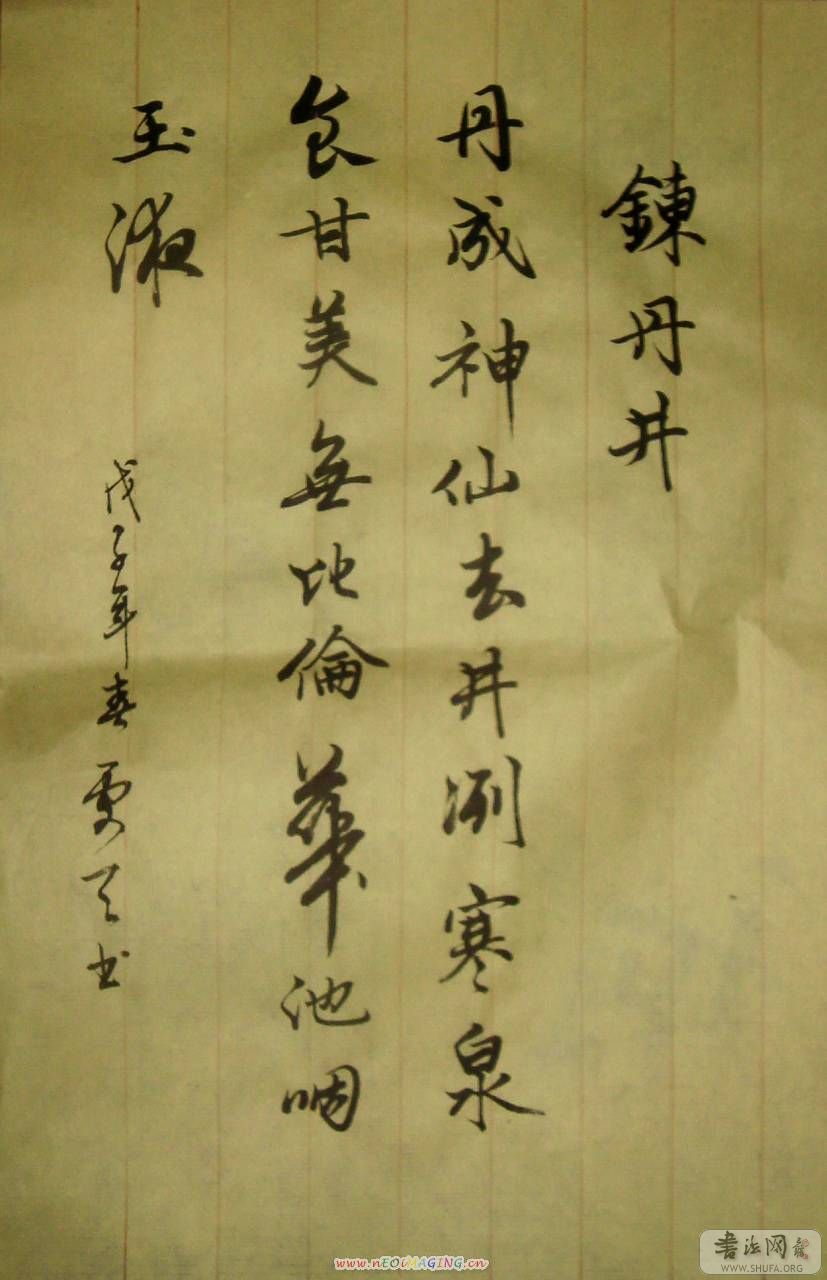 鍊丹井
丹成神仙去井冽寒泉
食甘美無比倫華池咽
玉液
戊子年春雲天书
书法网
WWW.SHUFA.ORG
www.nEOiMAGING.cn